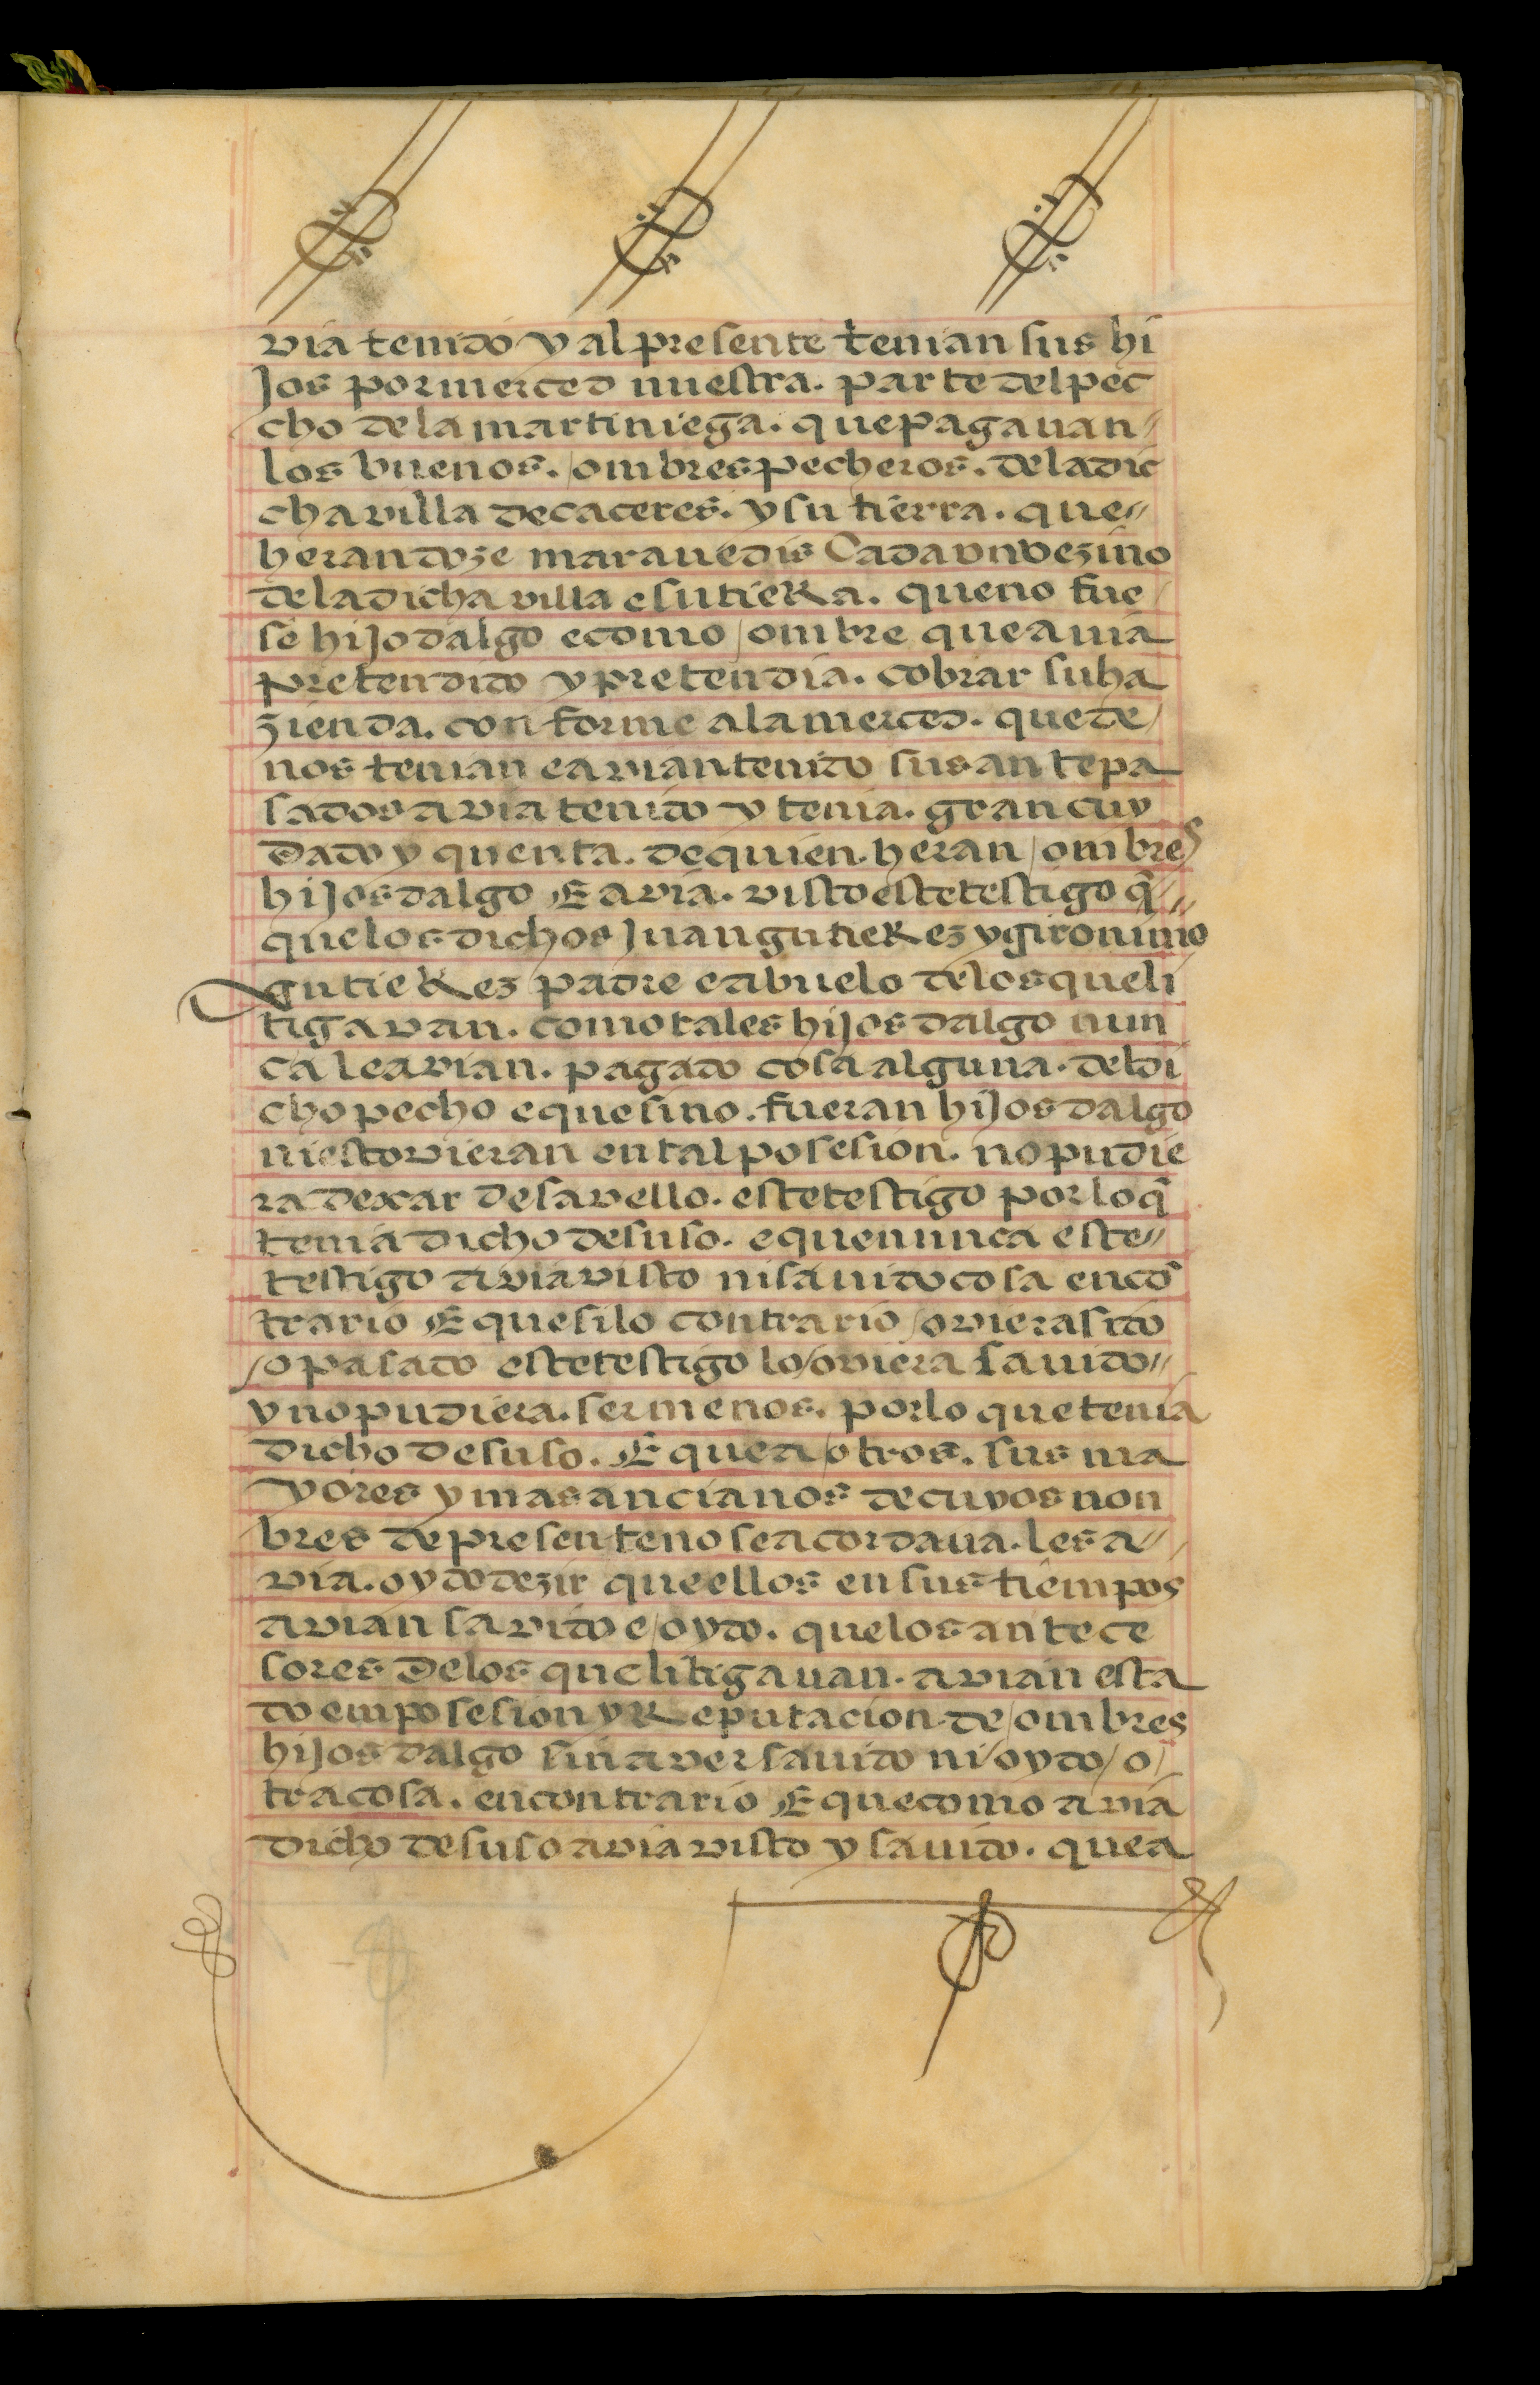 via tenido y al presente tenian sus hi
jos por merced nuestra. parte del pec
cho de la martiniega. que pagavan
los buenos. ombres pecheros. de la dic
cha villa de caceres. y su tierra. que
heran doze maravedis Cada un vezino
de la dicha villa e su tieRa. que no fue
se hijodalgo e como ombre que avia
pretendido y pretendia. cobrar su ha
zienda. conforme a la merced. que de
nos tenian e avian tenido sus antepa
sados avia tenido y tenia. gran cuy
dado y quenta. de quien heran ombres
hijosdalgo E avia. visto este testigo q̃
que los dichos Juan gutieRez y gironimo
gutieRez padre e abuelo de los que li
tigavan. como tales hijosdalgo nun
ca le avian. pagado cosa alguna. del di
cho pecho e que si no. fueran hijosdalgo
ni estovieran en tal posesion. no pudie
ra dexar de savello. este testigo por lo q̃
tenia dicho de suso. e que nunca este
testigo avia visto ni savido cosa en cõ
trario E que si lo contrario oviera sido
o pasado este testigo lo oviera savido
y no pudiera. ser menos. por lo que tenia
dicho de suso. E que a otros. sus ma
yores y mas ancianos de cuyos non
bres de presente no se acordava. les a
via. oydo dezir que ellos en sus tiempos
avian savido e oydo. que los antece
sores de los que litigavan. avian esta
do em posesion y Reputacion de ombres
hijosdalgo sin aver savido ni oydo o
tra cosa. en contrario E que como avia
dicho de suso avia visto y savido. que a